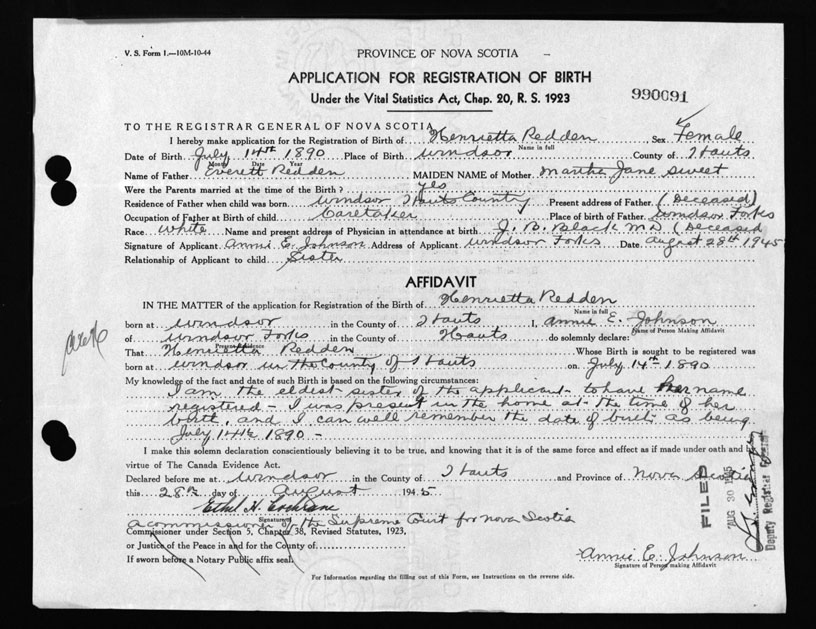 V. S. Form 1.—10M-10-44
PROVINCE OF NOVA SCOTIA
APPLICATION FOR REGISTRATION OF BIRTH
Under the Vital Statistics Act, Chap. 20, R. S. 1923
990091
TO THE REGISTRAR GENERAL OF NOVA SCOTIA
I hereby make application for the Registration of Birth of Henrietta Redden Sex Female
Name in full
Date of Birth July 14th 1890 Place of Birth Windsor County of Hants
Month Date Year
Name of Father Everett Redden MAIDEN NAME of Mother Martha Jane Sweet
Were the Parents married at the time of the Birth? yes
Residence of Father when child was born Windsor Hants County Present address of Father (Deceased)
Occupation of Father at Birth of child Caretaker Place of birth of Father Windsor Forks
Race White Name and present address of Physician in attendance at birth J. B. Black M D (Deceased
Signature of Applicant Annie E. Johnson Address of Applicant Windsor Forks Date August 28th 1945
Relationship of Applicant to child Sister
AFFIDAVIT
IN THE MATTER of the application for Registration of the Birth of Henrietta Redden
Name in full
born at Windsor in the County of Hants I, Annie E. Johnson
Name of Person Making Affidavit
of Windsor Forks in the County of Hants do solemnly declare:
Present Residence
That Henrietta Redden Whose Birth is sought to be registered was
born at Windsor in the County of Hants on July 14th 1890
My knowledge of the fact and date of such Birth is based on the following circumstances:
I am the eldest sister of the applicant to have her name
registered - I was present in the home at the time of her
birth, and I can well remember the date of birth as being
July 14th 1890 -
I make this solemn declaration conscientiously believing it to be true, and knowing that it is of the same force and effect as if made under oath and by
virtue of The Canada Evidence Act.
Declared before me at Windsor in the County of Hants and Province of Nova Scotia
this 28th day of August 1945
Ethel H. Cochrane
Signature
a commissioner of the Supreme Court for Nova Scotia
Commissioner under Section 5, Chapter 38, Revised Statutes, 1923,
or Justice of the Peace in and for the County of
If sworn before a Notary Public affix seal.
Annie E. Johnson
Signature of Person making Affidavit
For Information regarding the filling out of this Form, see Instructions on the reverse side.
FILED
AUG 30 1945
Deputy Registrar General